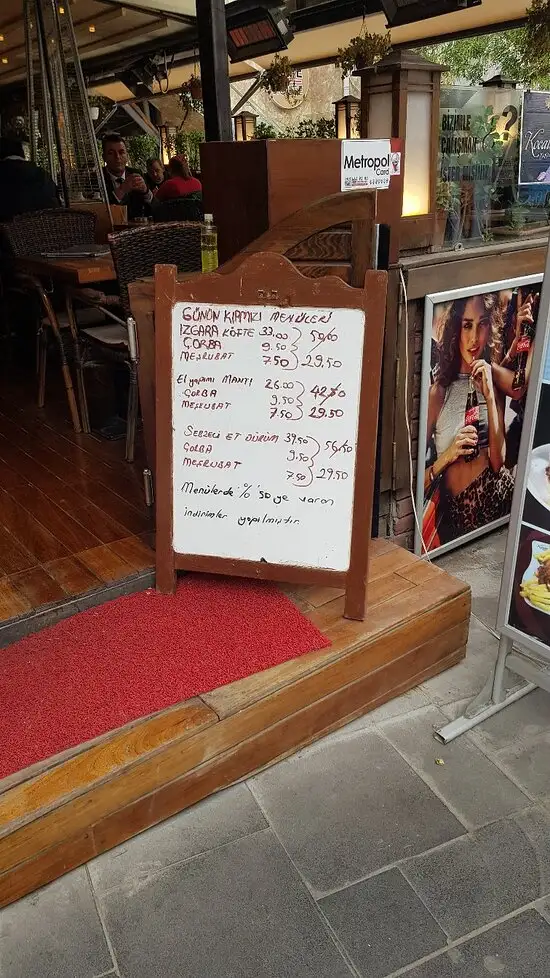 Metropol
Card
BİZİMLE
ÇALIŞMAK
İSTER MİSİNİZ
?
GÜNÜN KIRMIZI MENÜLERİ
IZGARA KÖFTE 33.00 50/00
ÇORBA 9.50
MEŞRUBAT 7.50 29.50
El yapımı MANTI 26.00 42.50
ÇORBA 9.50
MEŞRUBAT 7.50 29.50
SEBZELİ ET DÜRÜM 39.50 56.50
ÇORBA 9.50
MEŞRUBAT 7.50 29.50
Menülerde % 50 ye varan
indirimler yapılmıştır